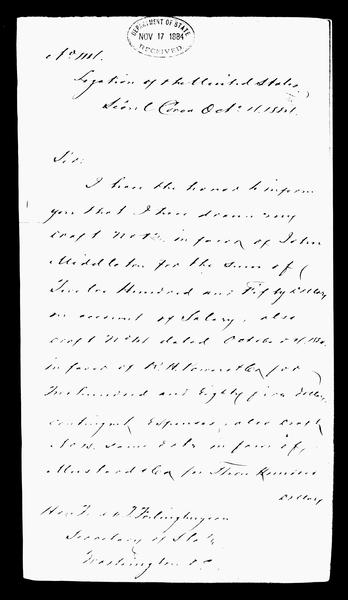 DEPARTMENT OF STATE
NOV 17 1884
RECEIVED
Legation of the United States
Seoul Corea Oct. 1884.
Sir:
I have the honor to inform
you that I have drawn my
draft No in favor of John
Middleton for the sum of
Twelve Hundred and Fifty Dollars
on account of Salary, also
draft No dated October
in favor of for
Hundred and Eighty five Dollars
contingent Expenses, also draft
No same date in favor of
Mustard & Co for Three Hundred
Dollars
Hon Fred T Frelinghuysen
Secretary of State
Washington D.C.